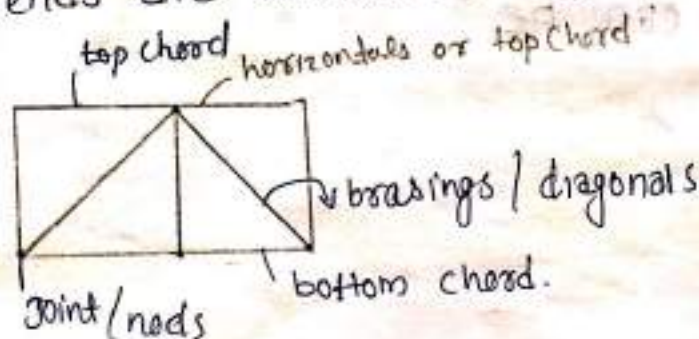 top chord
horizontals or top chord
brasings / diagonals
bottom chord.
Joint / nods